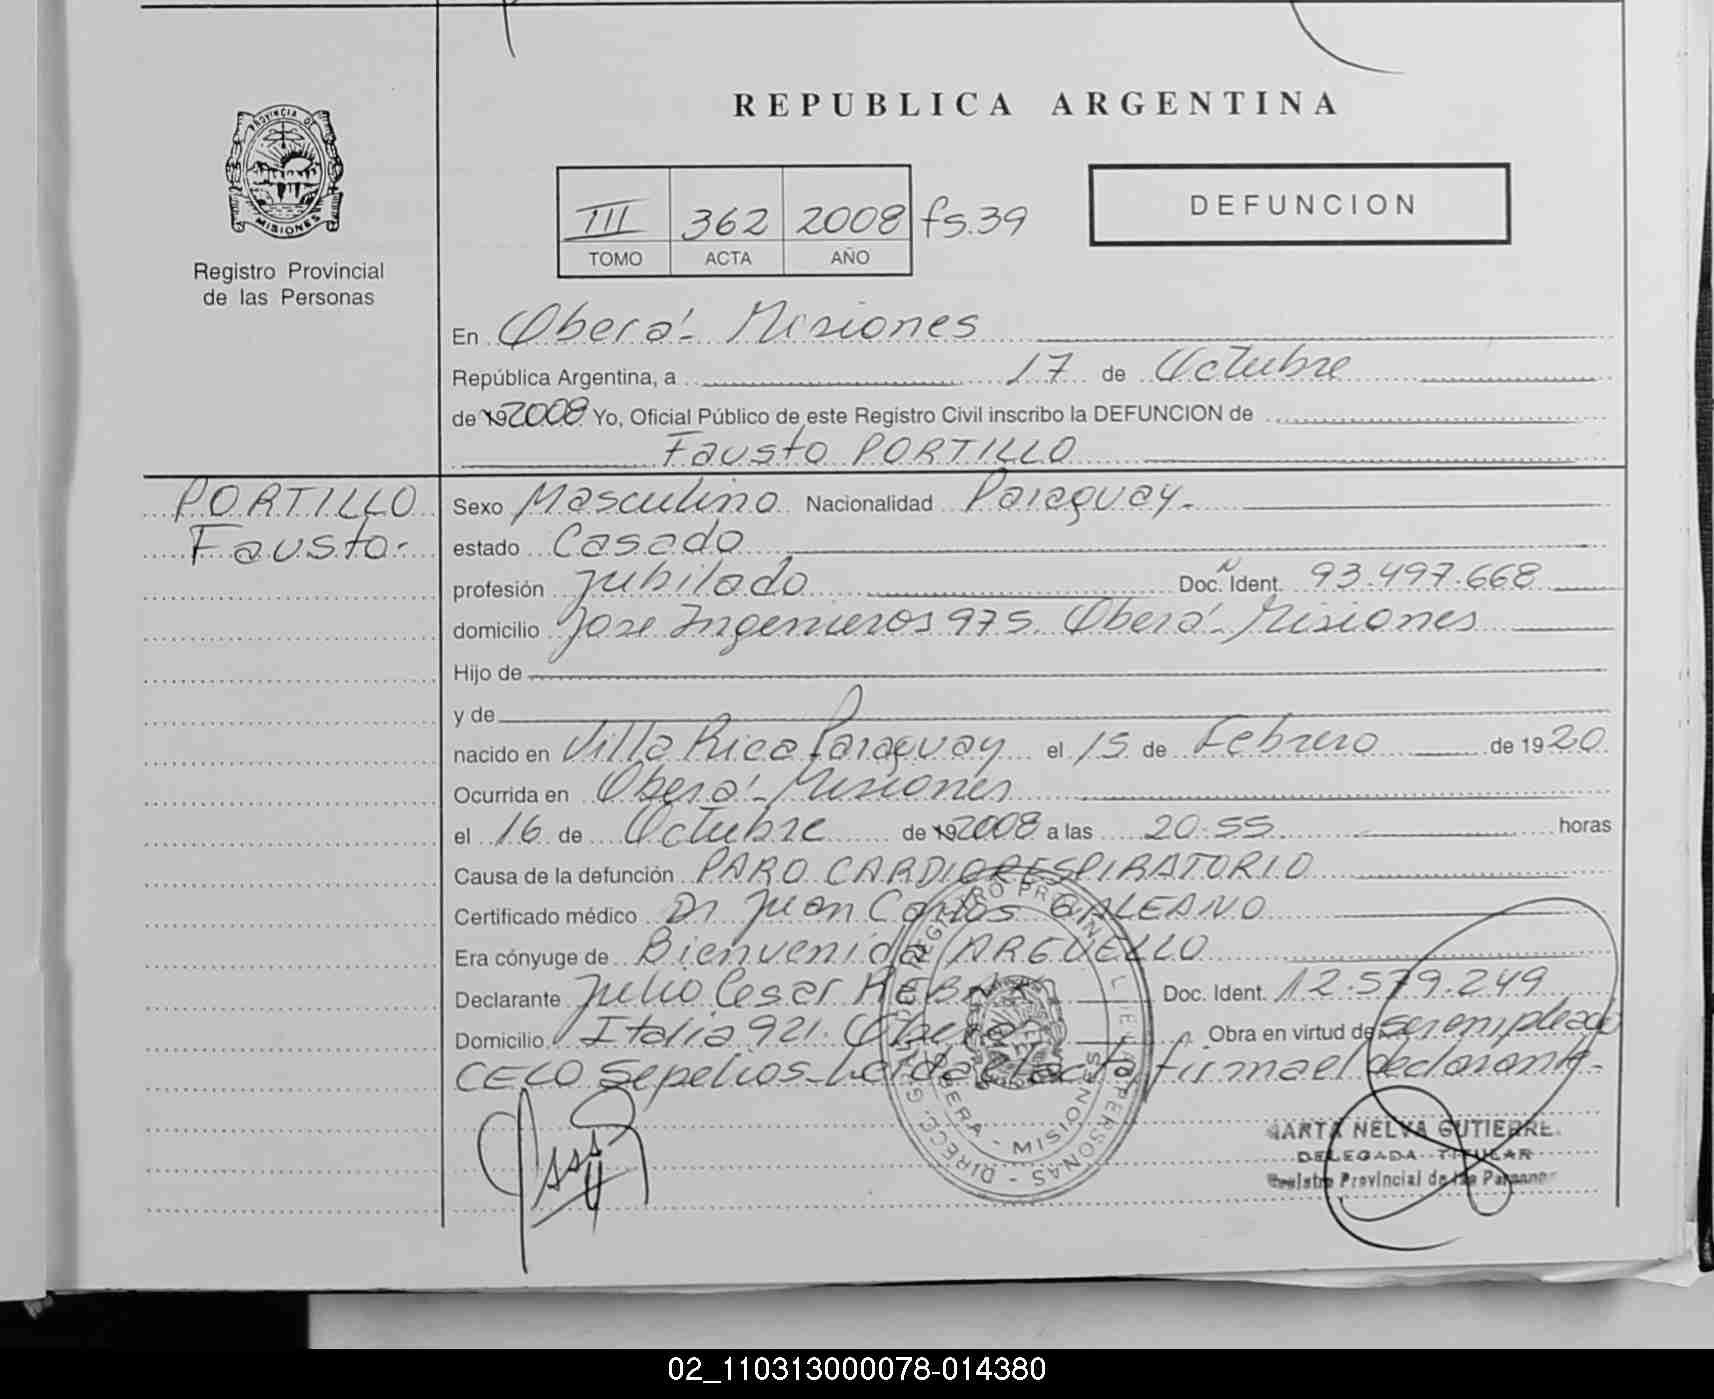 REPUBLICA ARGENTINA
PROVINCIA DE
MISIONES
Registro Provincial
de las Personas
III 362 2008 fs.39
TOMO ACTA AÑO
DEFUNCION
En Oberá - Misiones
República Argentina, a 17 de Octubre
de 192008 Yo, Oficial Público de este Registro Civil inscribo la DEFUNCION de
Fausto PORTILLO
PORTILLO
Fausto.-
Sexo Masculino Nacionalidad Paraguay.-
estado Casado
profesión Jubilado Doc. N Ident. 93.497.668
domicilio Jose Ingenieros 975. Oberá - Misiones
Hijo de
y de
nacido en Villa Rica Paraguay el 15 de Febrero de 1920
Ocurrida en Oberá - Misiones
el 16 de Octubre de 192008 a las 20.55 horas
Causa de la defunción PARO CARDIORESPIRATORIO
Certificado médico Dr Juan Carlos GALEANO
Era cónyuge de Bienvenida ARGUELLO
Declarante Julio Cesar Doc. Ident. 12.579.249
Domicilio Italia 921. Oberá Obra en virtud de ser empleado
CELO Sepelios - Leida el acta firma el declarante.-
OBERA - MISIONES
MARTA NELVA GUTIERRE
DELEGADA TITULAR
Registro Provincial de las Personas
02_110313000078-014380